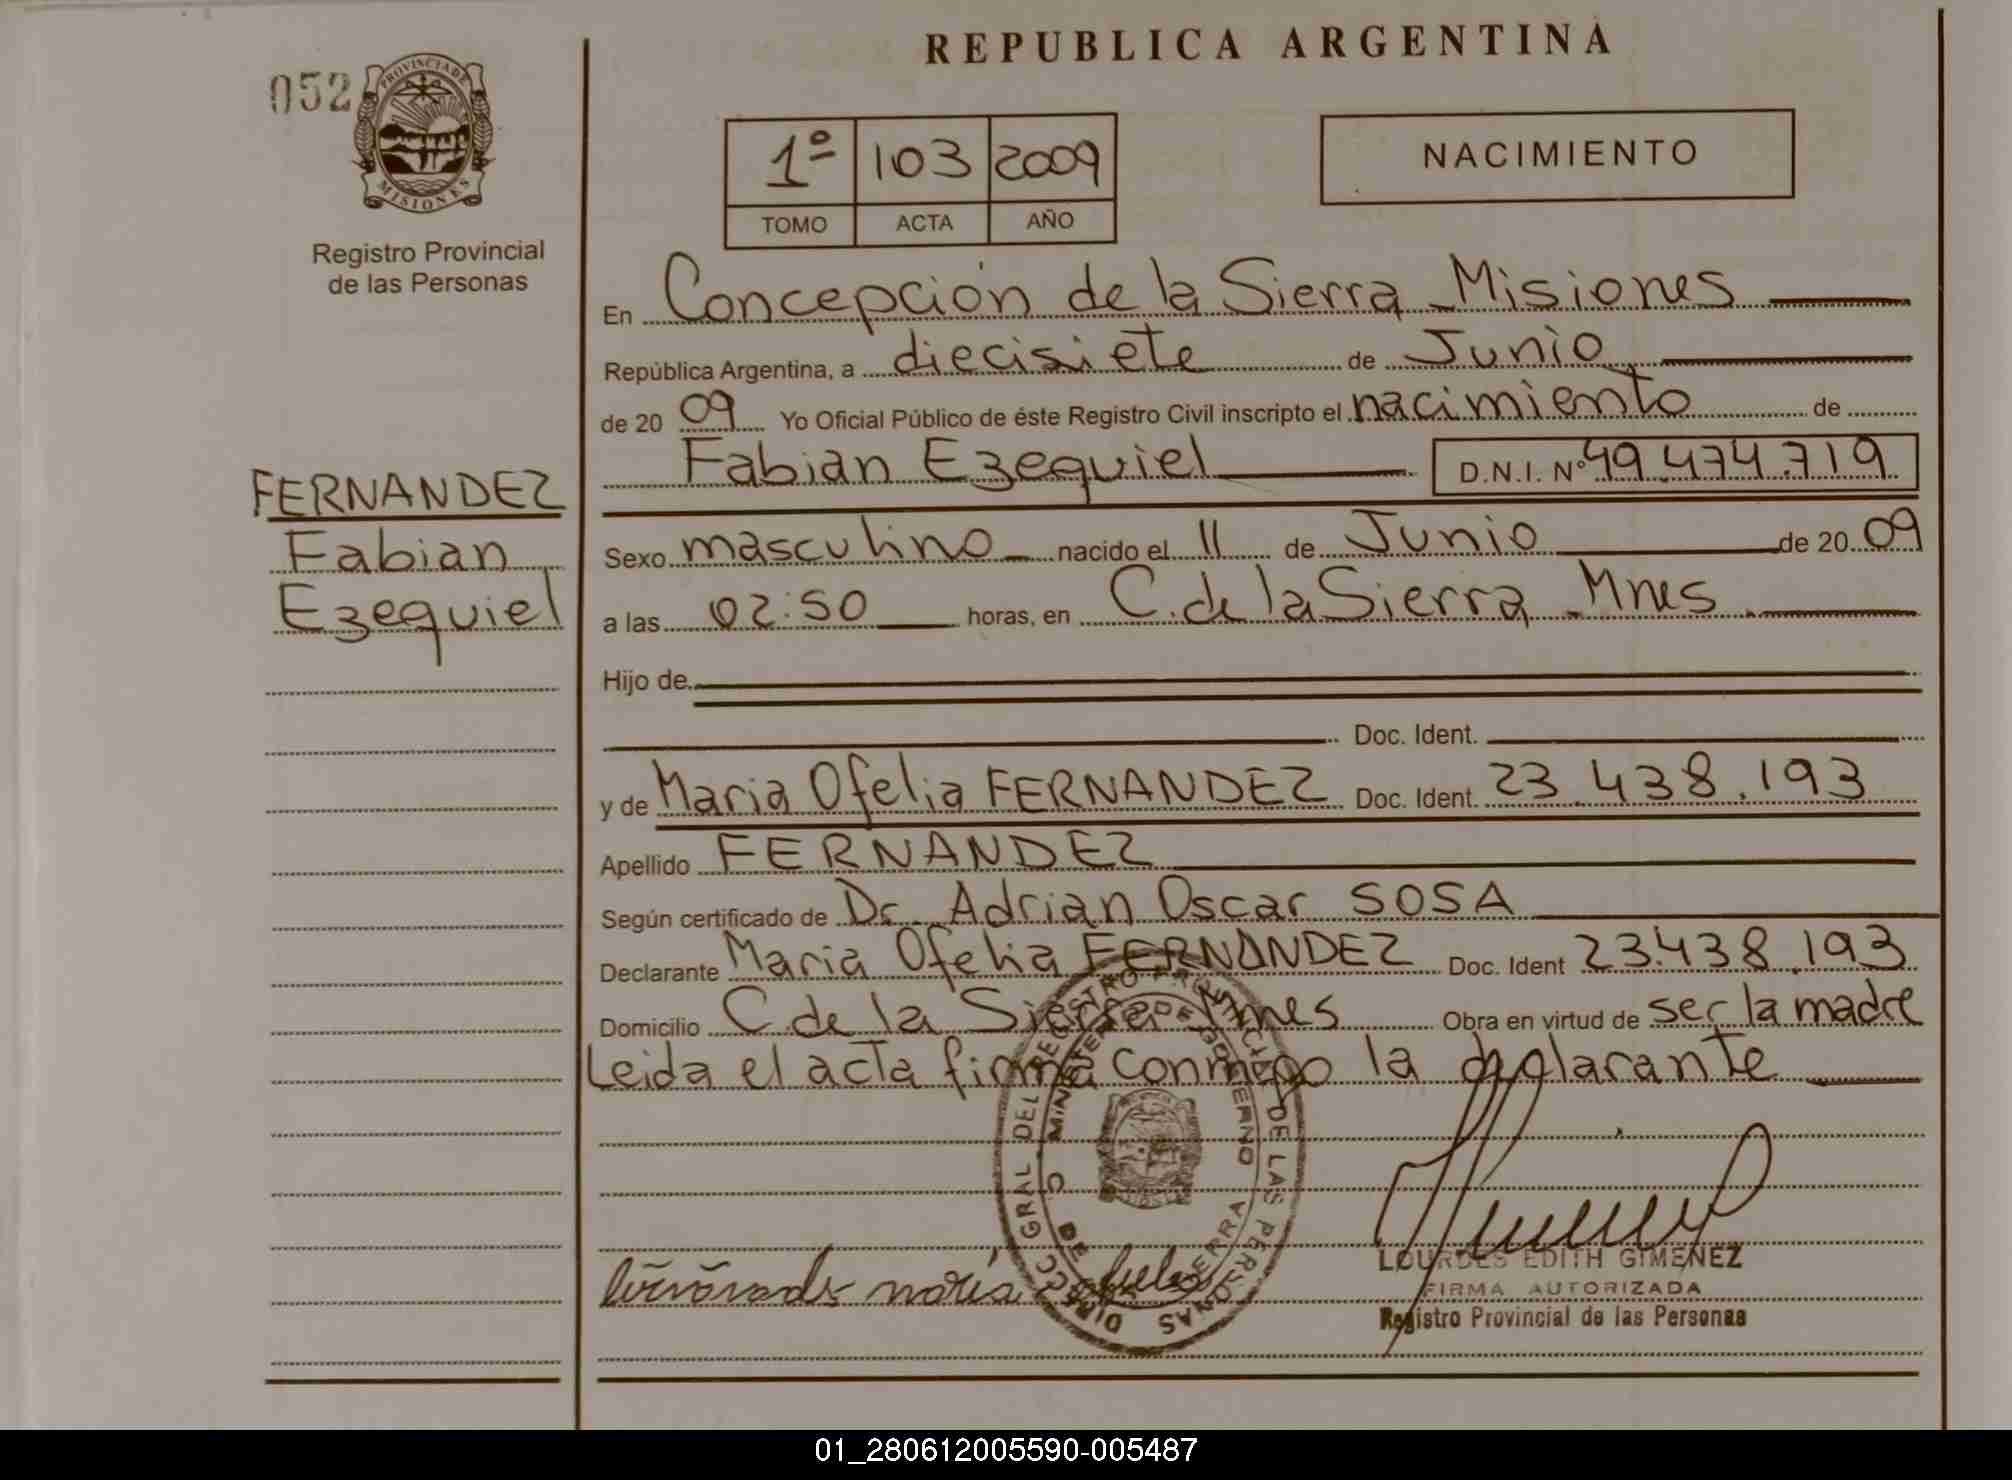 052
PROVINCIA DE
MISIONES
Registro Provincial
de las Personas
FERNANDEZ
Fabian
Ezequiel
REPUBLICA ARGENTINA
1º 103 2009
TOMO ACTA AÑO
NACIMIENTO
En Concepción de la Sierra - Misiones
República Argentina, a diecisiete de Junio
de 20 09 Yo Oficial Público de éste Registro Civil inscripto el nacimiento de
Fabian Ezequiel D.N.I. Nº 49.474.719
Sexo masculino nacido el 11 de Junio de 20 09
a las 02:50 horas, en C. de la Sierra - Mnes
Hijo de
Doc. Ident.
y de Maria Ofelia FERNANDEZ Doc. Ident. 23.438.193
Apellido FERNANDEZ
Según certificado de Dr. Adrian Oscar SOSA
Declarante Maria Ofelia FERNANDEZ Doc. Ident 23.438.193
Domicilio C. de la Sierra Mnes Obra en virtud de ser la madre
Leida el acta firma conmigo la declarante
DIRECC. GRAL. DEL REGISTRO PROVINCIAL DE LAS PERSONAS
MINISTERIO DE GOBIERNO
C. DE SIERRA
maria ofelia
LOURDES EDITH GIMENEZ
FIRMA AUTORIZADA
Registro Provincial de las Personas
01_280612005590-005487